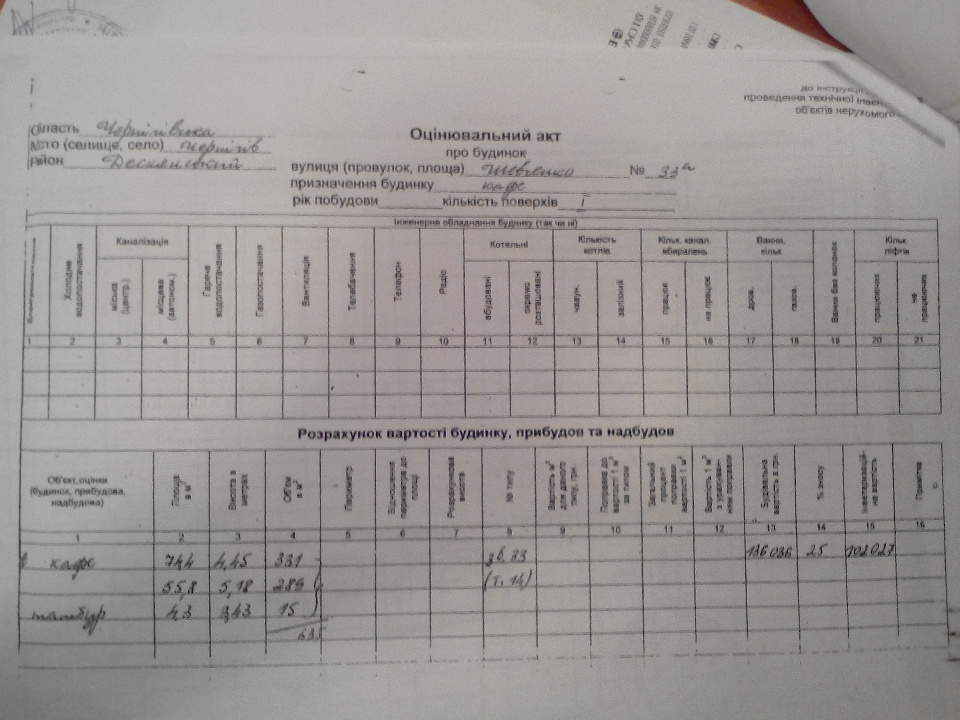 до інструкції
проведення технічної інвен
об'єктів нерухомого
область Чернігівська
місто (селище, село) Чернігів
район Деснянський
Оцінювальний акт
про будинок
вулиця (провулок, площа) Шевченко № 33а
призначення будинку кафе
рік побудови кількість поверхів 1
Інженерне обладнання будинку (так чи ні)
Холодне водопостачання
Каналізація
міська (центр.)
місцева (автоном.)
Гаряче водопостачання
Газопостачання
Вентиляція
Телебачення
Телефон
Радіо
Котельні
вбудовані
окремо розташовані
Кількість котлів
чавун.
залізний
Кільк. канал. вбиралень
працює
не працює
Ванни, кільк
дров.
газов.
Ванни без колонок
Кільк. ліфтів
працюючих
не працюючих
1 2 3 4 5 6 7 8 9 10 11 12 13 14 15 16 17 18 19 20 21
Розрахунок вартості будинку, прибудов та надбудов
Об'єкт оцінки (будинок, прибудова, надбудова)
Площа в м²
Висота в метрах
Об'єм в м³
Периметр
Відношення периметра до площі
Розрахункова висота
№ типу
Вартість м³ для даного типу, грн.
Поправка до вартості 1 м³ за типом
Загальний процент поправки вартості 1 м³
Вартість 1 м³ з урахуванням поправки
Будівельна вартість в грн.
% зносу
Інвентаризаційна вартість
Примітка
1 2 3 4 5 6 7 8 9 10 11 12 13 14 15 16
кафе 74,4 4,45 331 зб. 33 136 036 25 102 027
55,8 5,18 289 (т. 14)
тамбур 4,3 3,43 15
635